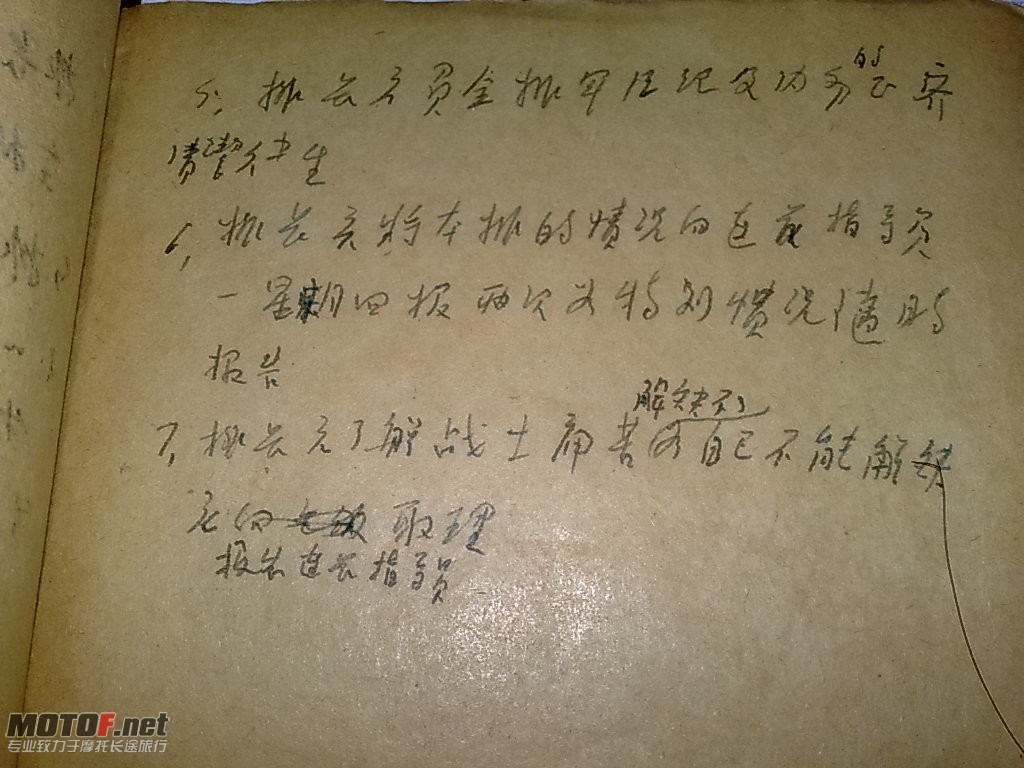 5、排长应负全排军风纪及内务的正齐
清洁卫生
6、排长应将本排的情况向连长指导员
一星期回报两次如特别情况随时
报告
解决
7、排长应了解战士痛苦如自己不能解决
应向 取理
报告连长指导员
MOTOF.net
专业致力于摩托长途旅行